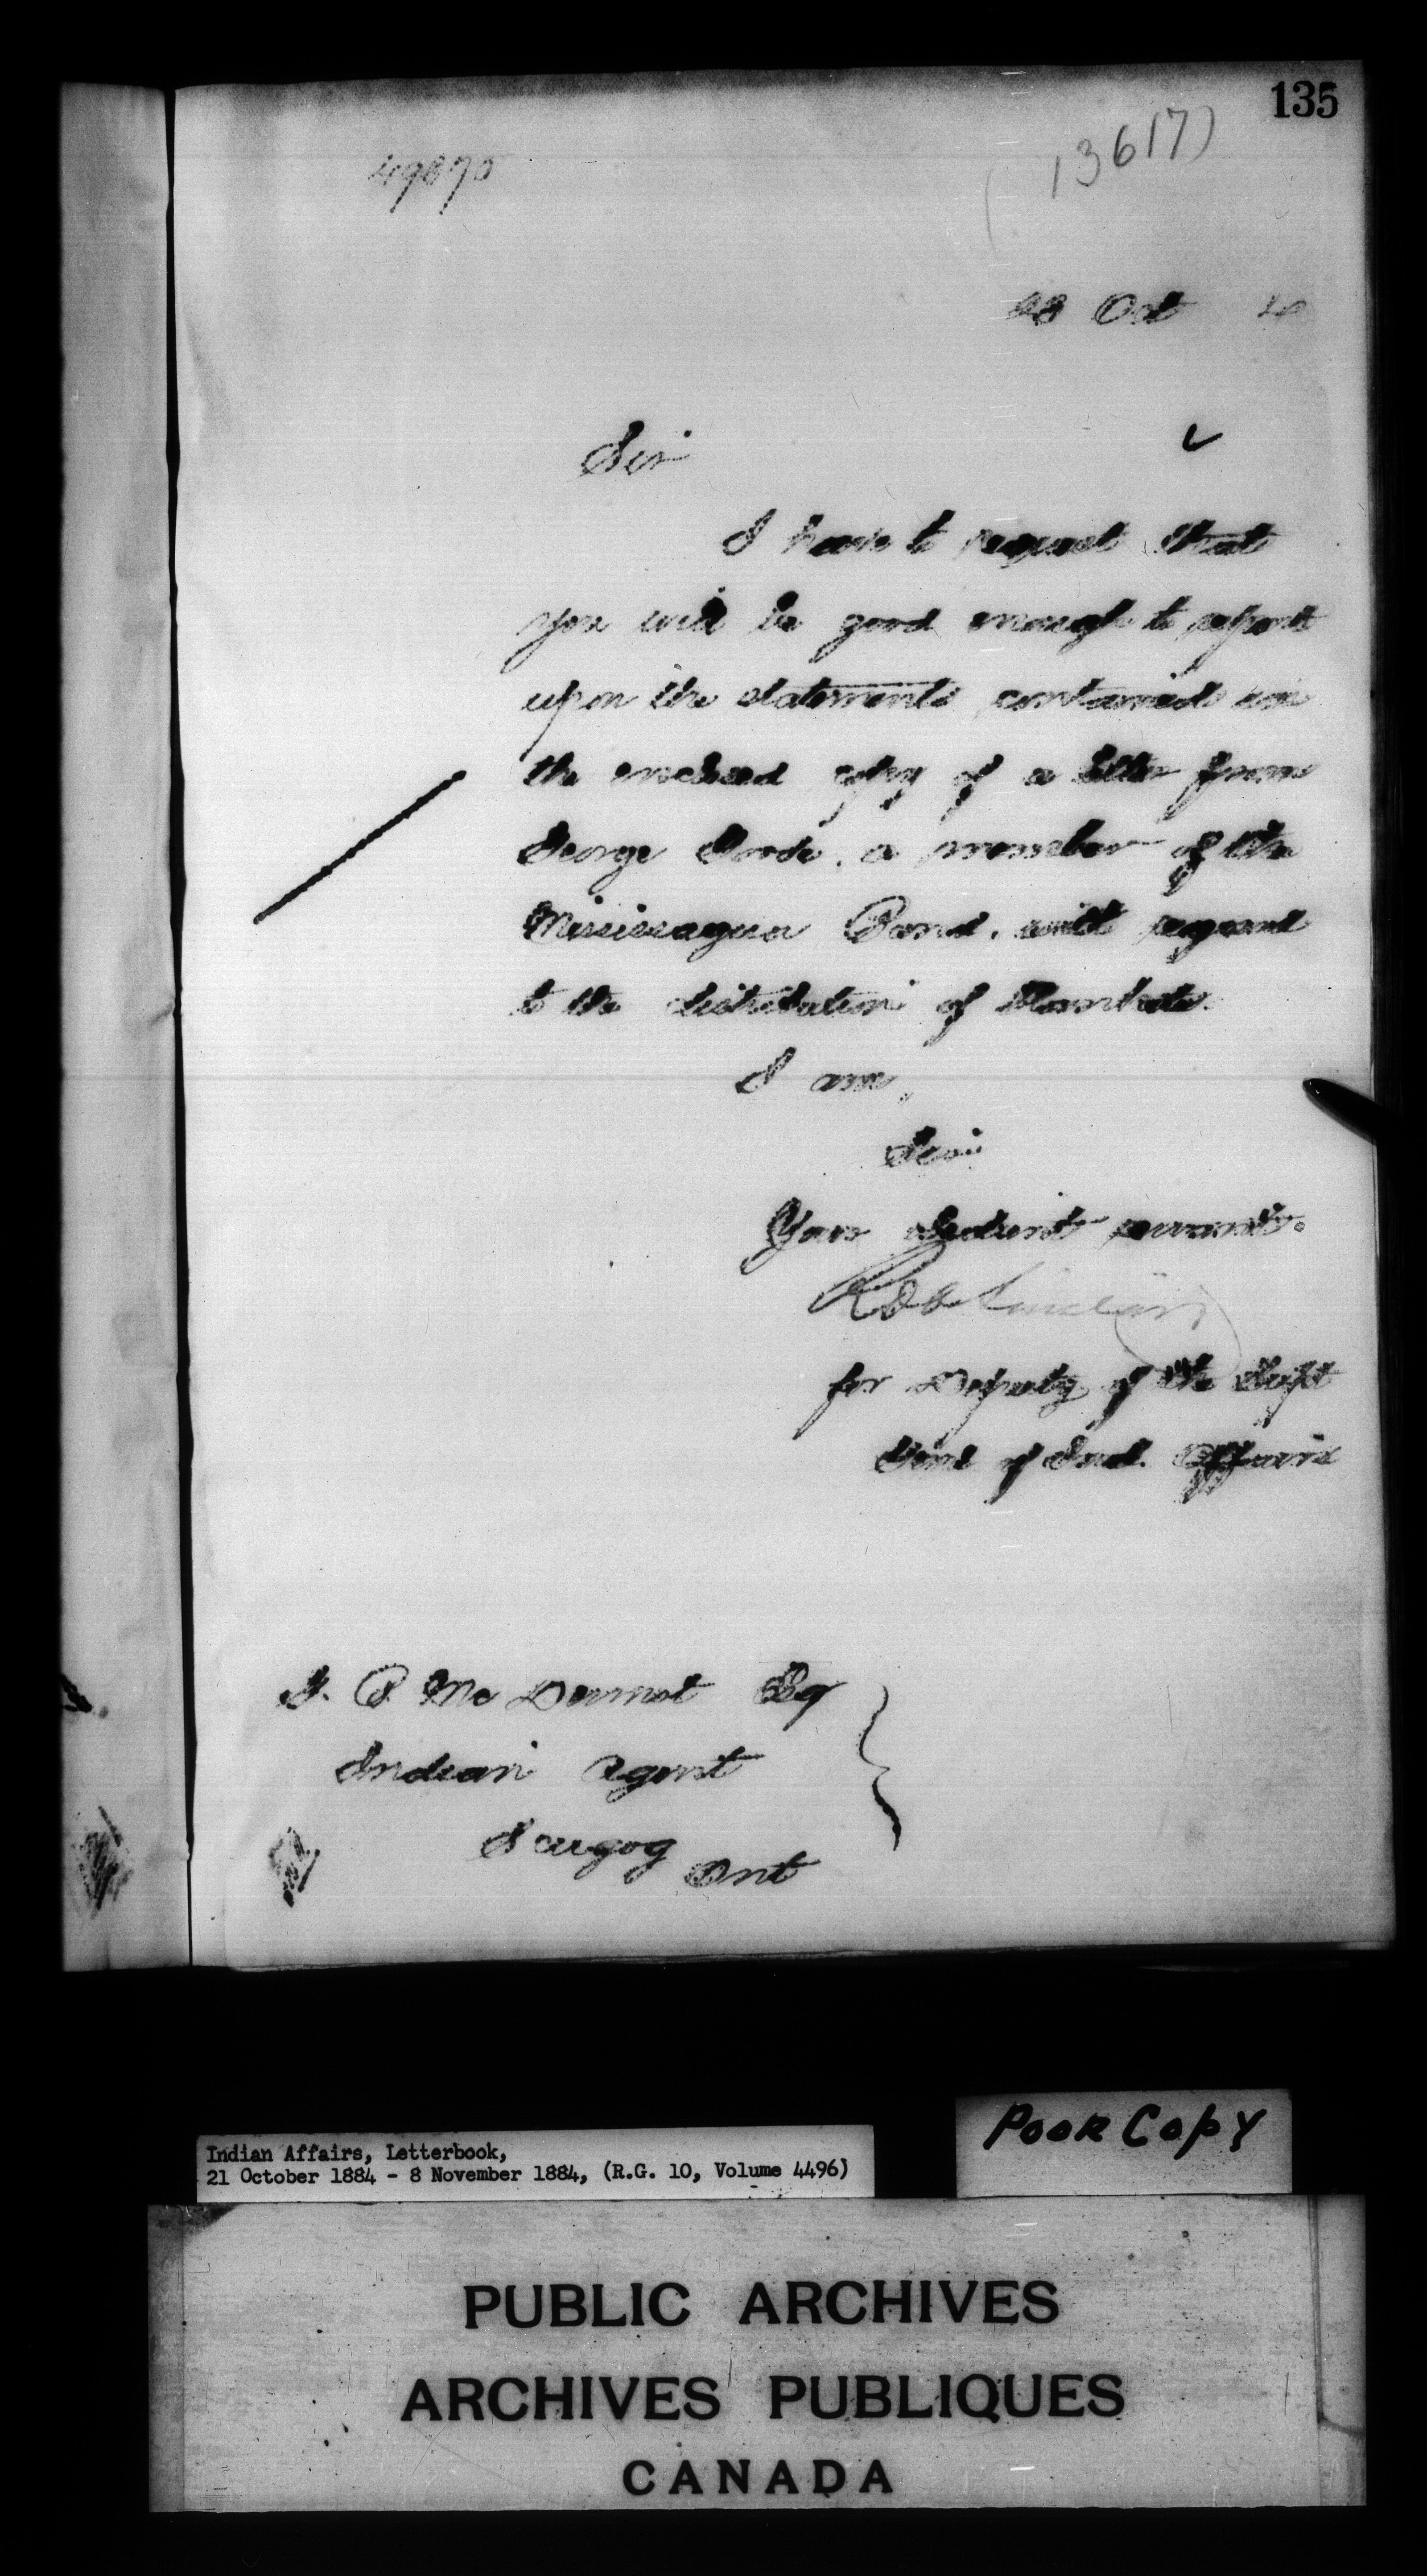 135
13617)
28 Oct 4
Sir
I have to request that
you will be good enough to report
upon the statements contained in
the enclosed copy of a letter from
George Goode, a member of the
Mississagua Band, with regard
to the distribution of Blankets.
I am,
Sir
Your obedient servant.
Sinclair
for Deputy of the Supt
Genl of Ind. Affairs
Mc Dermot Esq
Indian Agent
Scugog
Ont
Poor Copy
Indian Affairs, Letterbook,
21 October 1884 - 8 November 1884, (R.G. 10, Volume 4496)
PUBLIC ARCHIVES
ARCHIVES PUBLIQUES
CANADA